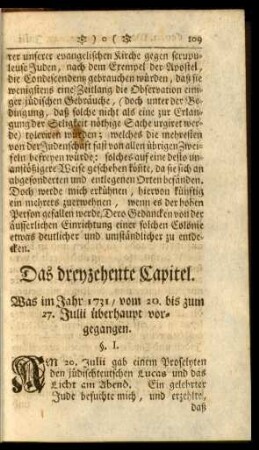 ☙ ) o ( ☙ 109
rer unserer evangelischen Kirche gegen scrupu-
leuse Juden, nach dem Exempel der Apostel,
die Condescendenz gebrauchen würden, daß sie
wenigstens eine Zeitlang die Observation eini-
ger jüdischen Gebräuche, (doch unter der Be-
dingung, daß solche nicht als eine zur Erlan-
gung der Seligkeit nöthige Sache urgiret wer-
de) toleriren würden; welches die mehresten
von der Judenschaft fast von allen übrigen Zwei-
feln befreyen würde; solches auf eine desto un-
anstößigere Weise geschehen könte, da sie sich an
abgesonderten und entlegenen Orten befänden.
Doch werde mich erkühnen, hiervon künftig
ein mehrers zu erwehnen, wenn es der hohen
Person gefallen werde, Dero Gedancken von der
äusserlichen Einrichtung einer solchen Colonie
etwas deutlicher und umständlicher zu entde-
cken.
Das dreyzehente Capitel.
Was im Jahr 1731, vom 20. bis zum
27. Julii überhaupt vor-
gegangen.
§. I.
AM 20. Julii gab einem Proselyten
den jüdischteutschen Lucas und das
Licht am Abend. Ein gelehrter
Jude besuchte mich, und erzehlte,
daß